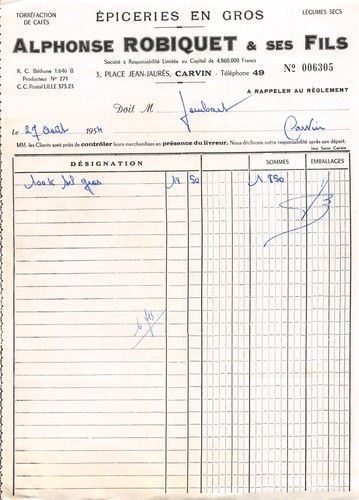 TORRÉFACTION
DE CAFÉS
ÉPICERIES EN GROS
LÉGUMES SECS
ALPHONSE ROBIQUET & SES FILS
Société à Responsabilité Limitée au Capital de 4.860.000 Francs
R. C. Béthune 1.646 B
Producteur Nº 271
C. C. Postal LILLE 373.23
3, PLACE JEAN-JAURÈS, CARVIN - Téléphone 49
Nº 006305
A RAPPELER AU RÈGLEMENT
Doit M.
Carvin
le 27 Août 1954
MM. les Clients sont priés de contrôler leurs marchandises en présence du livreur. Nous déclinons notre responsabilité après son départ.
Imp. Senn. Carvin
DÉSIGNATION
SOMMES
EMBALLAGES
100 k sel gros 18 50 1 850